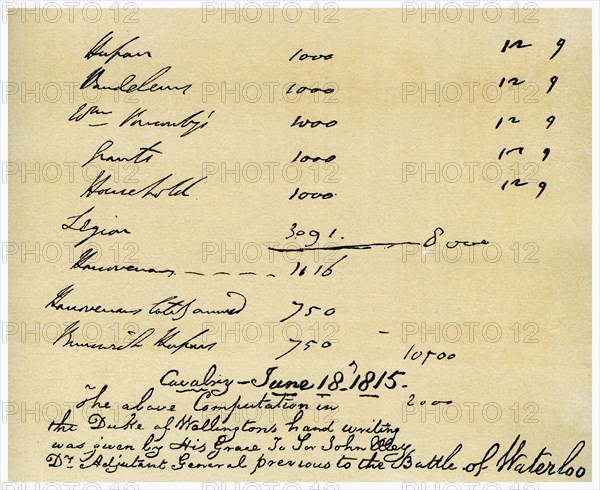 Hussar 1000 12 9
Vandeleurs 1000 12 9
Wm Ponsonby's 1000 12 9
Grants 1000 12 9
Household 1000 12 9
Legion 3091. 8000
Hanoverians 1616
Hanoverians 750
Brunswick Hussars 750 10500
Cavalry - June 18th 1815.
The above Computation in 2000
the Duke of Wellington's hand writing
was given by His Grace To Sir John Elley
Dy Adjutant General previous to the Battle of Waterloo